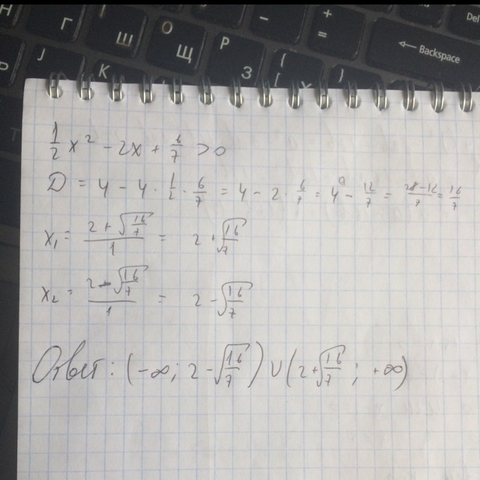 Г Ш О - + = Del
П Р Щ Backspace
Л К З
1/2 x² - 2x + 6/7 > 0
D = 4 - 4 · 1/2 · 6/7 = 4 - 2 · 6/7 = 4 - 12/7 = 28-12/7 = 16/7
x₁ = 2+√16/7 / 1 = 2 + √16/7
x₂ = 2-√16/7 / 1 = 2 - √16/7
Ответ: (-∞; 2-√16/7) ∪ (2+√16/7; +∞)